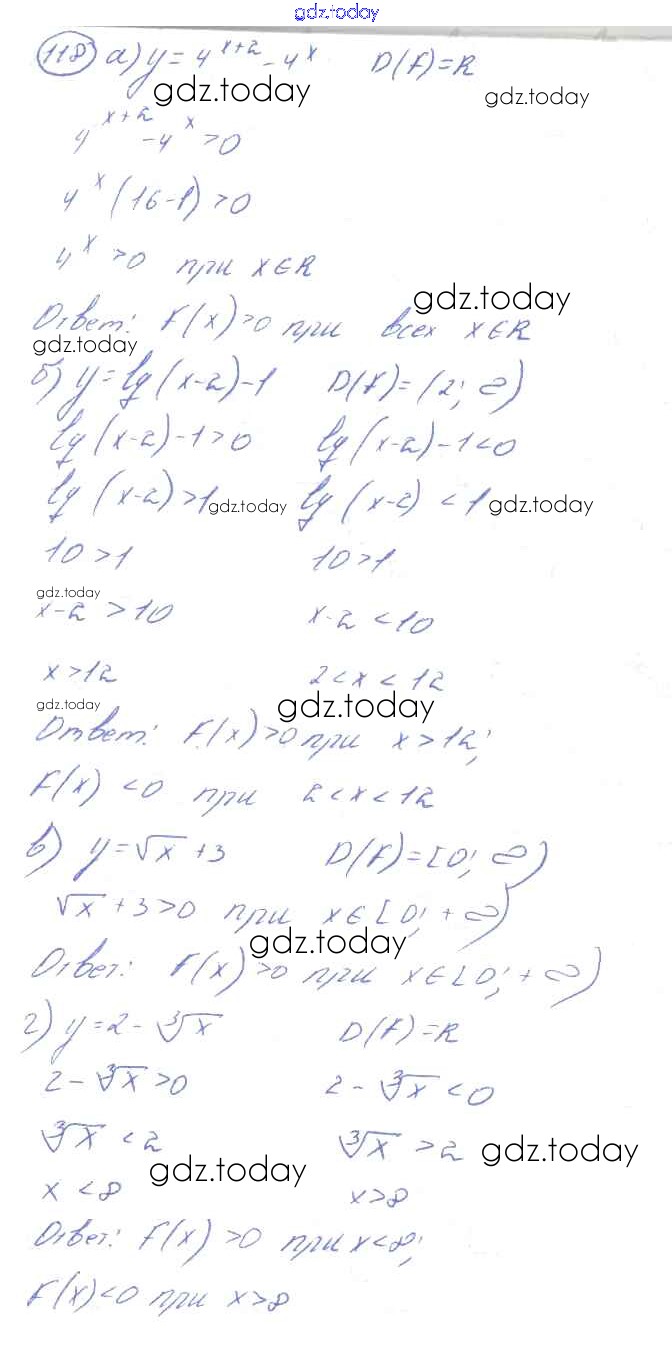 gdz.today
118 а) y = 4^(x+2) - 4^x D(f) = R
gdz.today gdz.today
4^(x+2) - 4^x > 0
4^x (16-1) > 0
4^x > 0 при x∈R
gdz.today
Ответ: F(x) > 0 при всех x∈R
gdz.today
б) y = lg(x-2) - 1 D(f) = (2; ∞)
lg(x-2) - 1 > 0 lg(x-2) - 1 < 0
lg(x-2) > 1 gdz.today lg(x-2) < 1 gdz.today
10 > 1 10 > 1
gdz.today
x-2 > 10 x-2 < 10
x > 12 2 < x < 12
gdz.today gdz.today
Ответ: F(x) > 0 при x > 12;
F(x) < 0 при 2 < x < 12
в) y = √x + 3 D(f) = [0; ∞)
√x + 3 > 0 при x∈[0; +∞)
gdz.today
Ответ: F(x) > 0 при x∈[0; +∞)
г) y = 2 - ∛x D(f) = R
2 - ∛x > 0 2 - ∛x < 0
∛x < 2 ∛x > 2 gdz.today
gdz.today
x < 8 x > 8
Ответ: F(x) > 0 при x < 8;
F(x) < 0 при x > 8